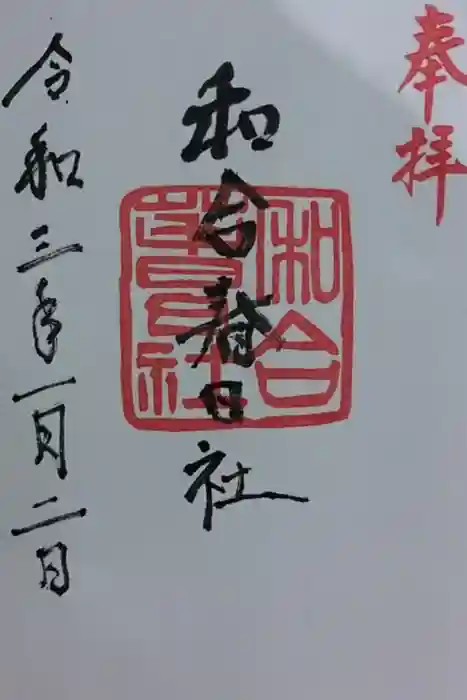 奉拝
和合春日社
和合
春日社
令和三年一月二日